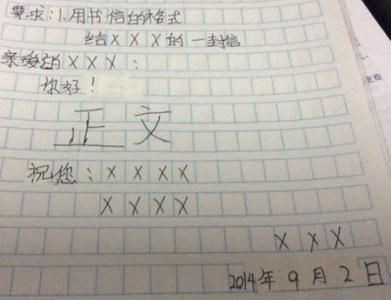 要求:1.用书信的格式
给XXX的一封信
亲爱的XXX:
你好!
正文
祝您:XXXX
XXXX
XXX
2014年9月2日